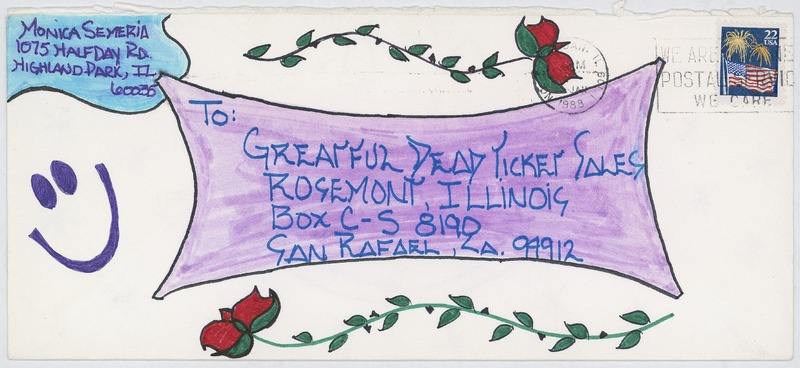 Monica Semeria
1075 Half Day Rd.
Highland Park, IL
60035
22
USA
1988
POSTAL
WE CARE
To:
Greatful Dead Ticket Sales
Rosemont, Illinois
Box C-S 8190
San Rafael, Ca. 94912